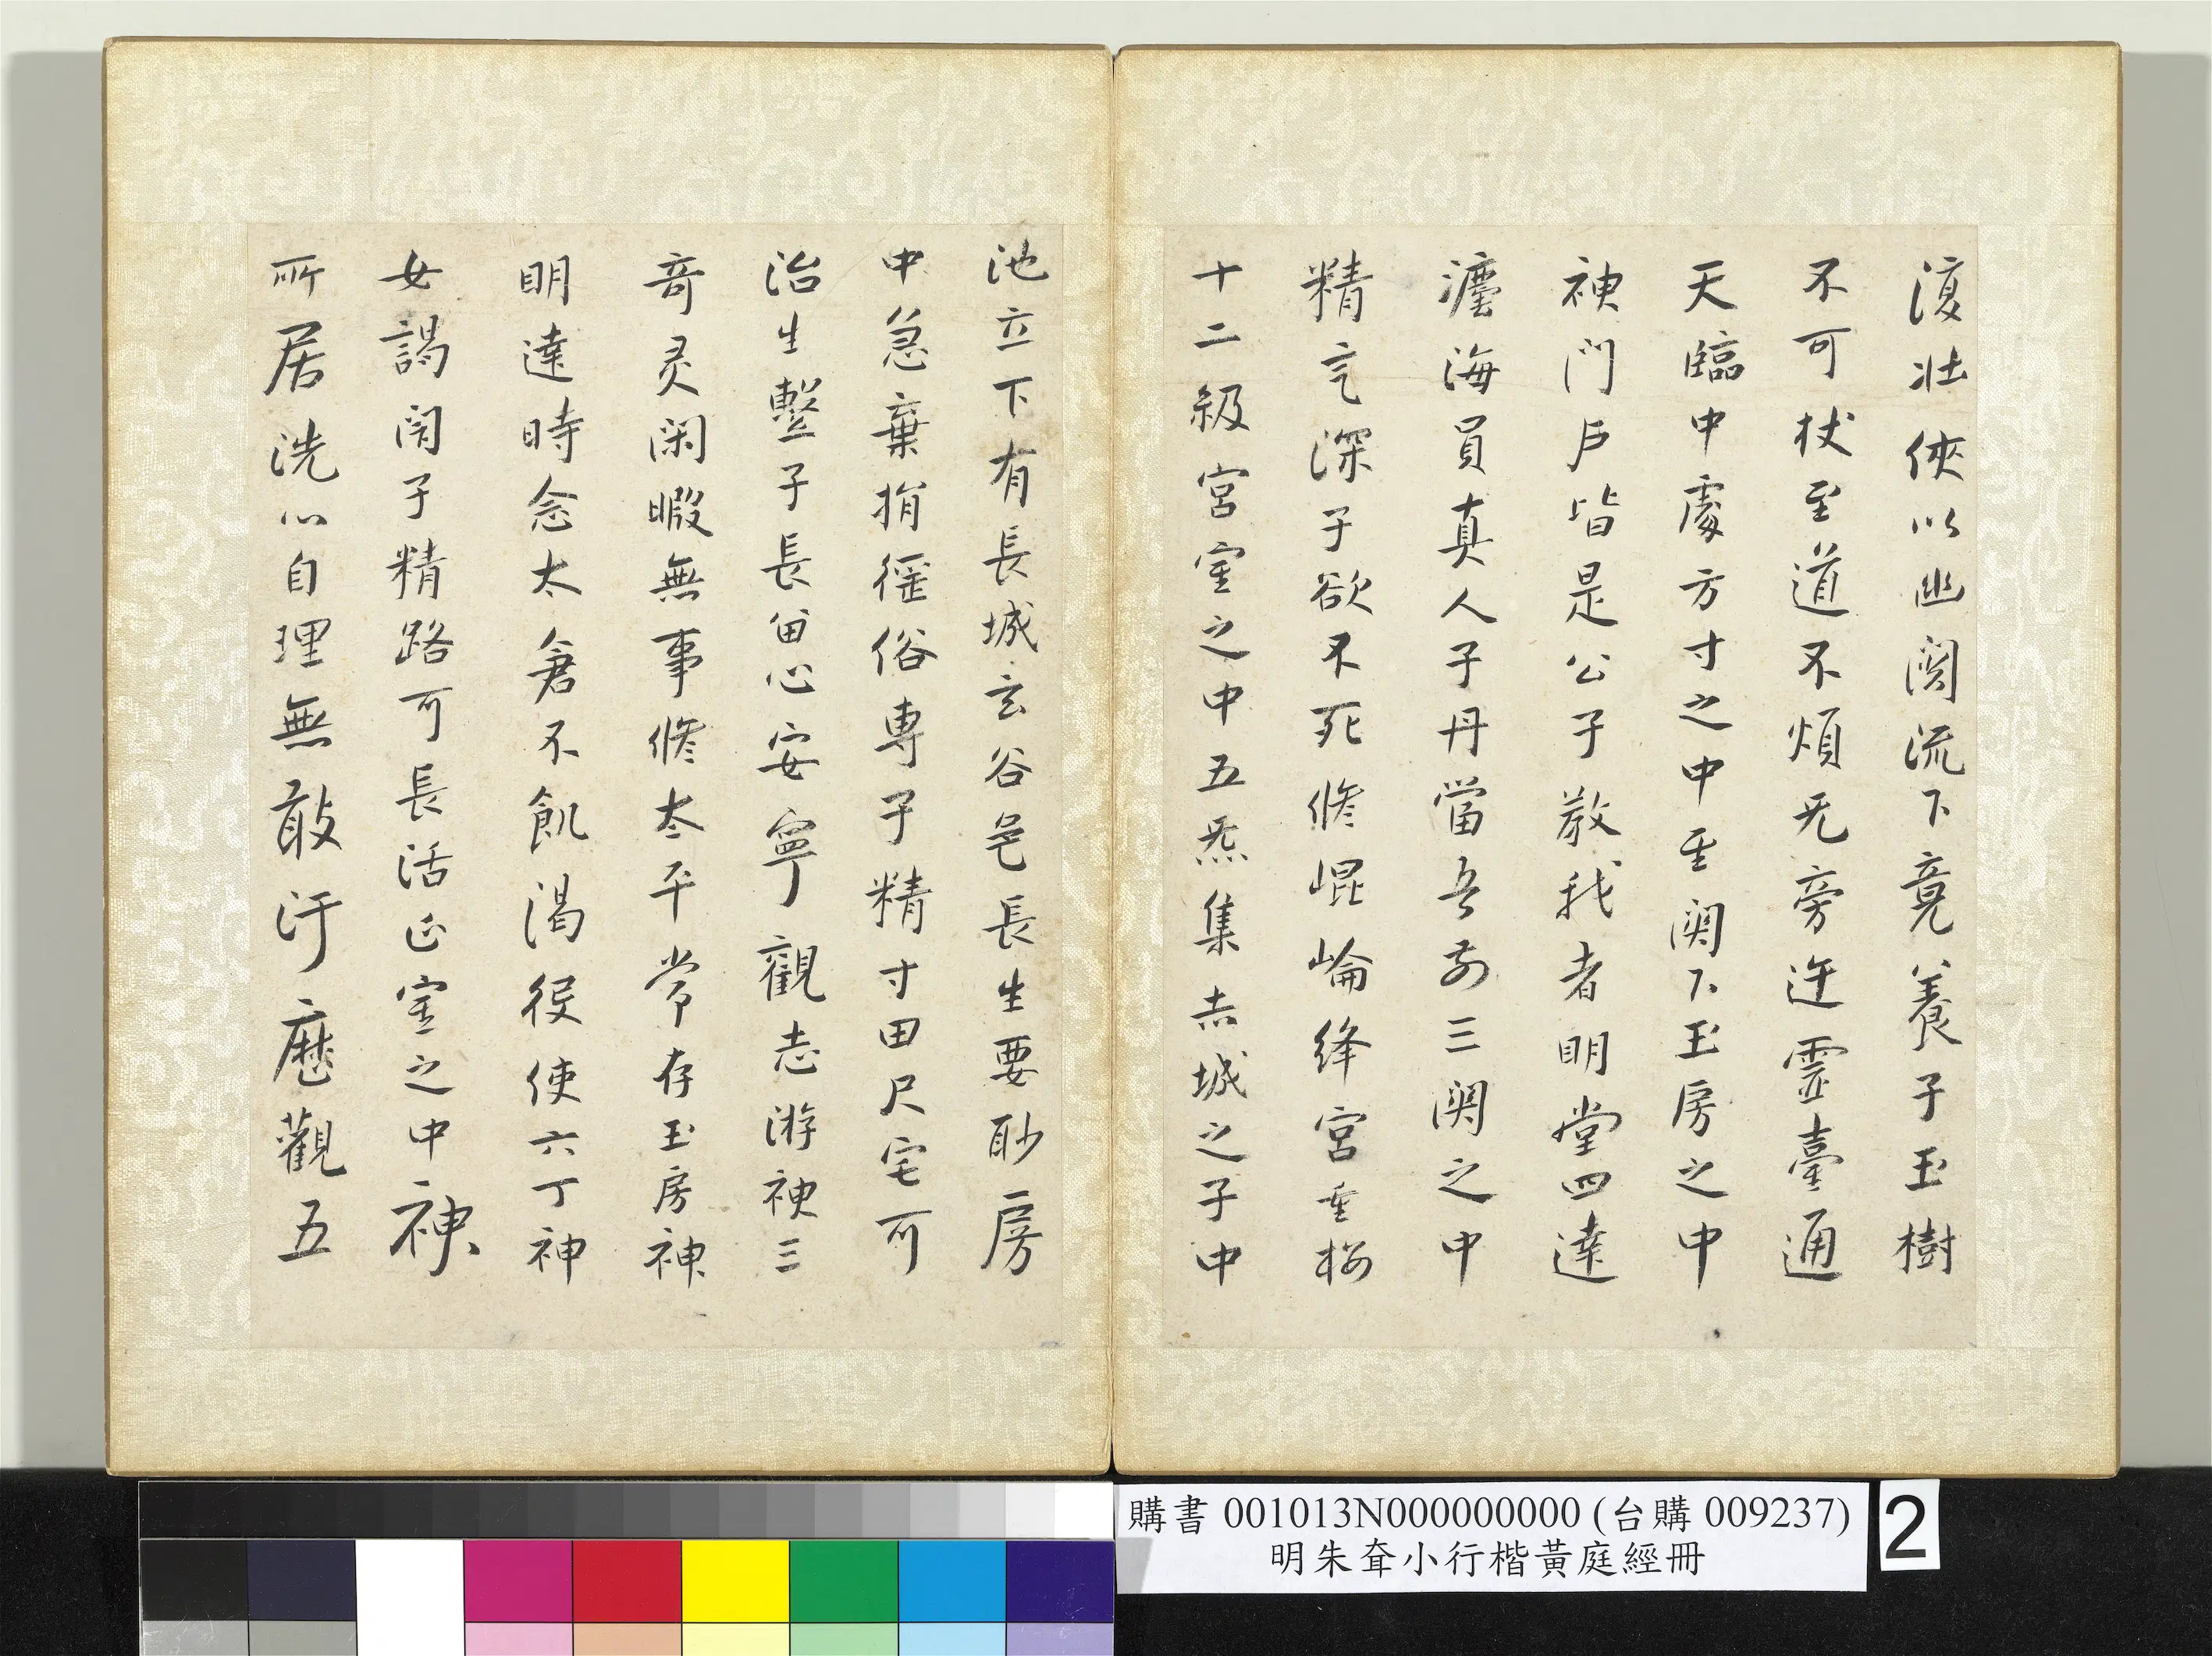 湲壯俠以幽闕流下竟養子玉樹
不可杖至道不煩无旁迕靈臺通
天臨中處方寸之中至闕下玉房之中
神門戶皆是公子教我者明堂四達
瀍海員真人子丹當吾前三關之中
精氣深子欲不死修崐崘絳宮重樓
十二級宮室之中五炁集赤城之子中
池立下有長城玄谷邑長生要眇房
中急棄捐徭俗專子精寸田尺宅可
治生繫子長留心安寧觀志游神三
奇灵閑暇無事修太平常存玉房神
明達時念太倉不飢渴役使六丁神
女謁閉子精路可長活正室之中神
所居洗心自理無敢汙歷觀五
購書 001013N000000000 (台購 009237)
明朱耷小行楷黃庭經冊
2